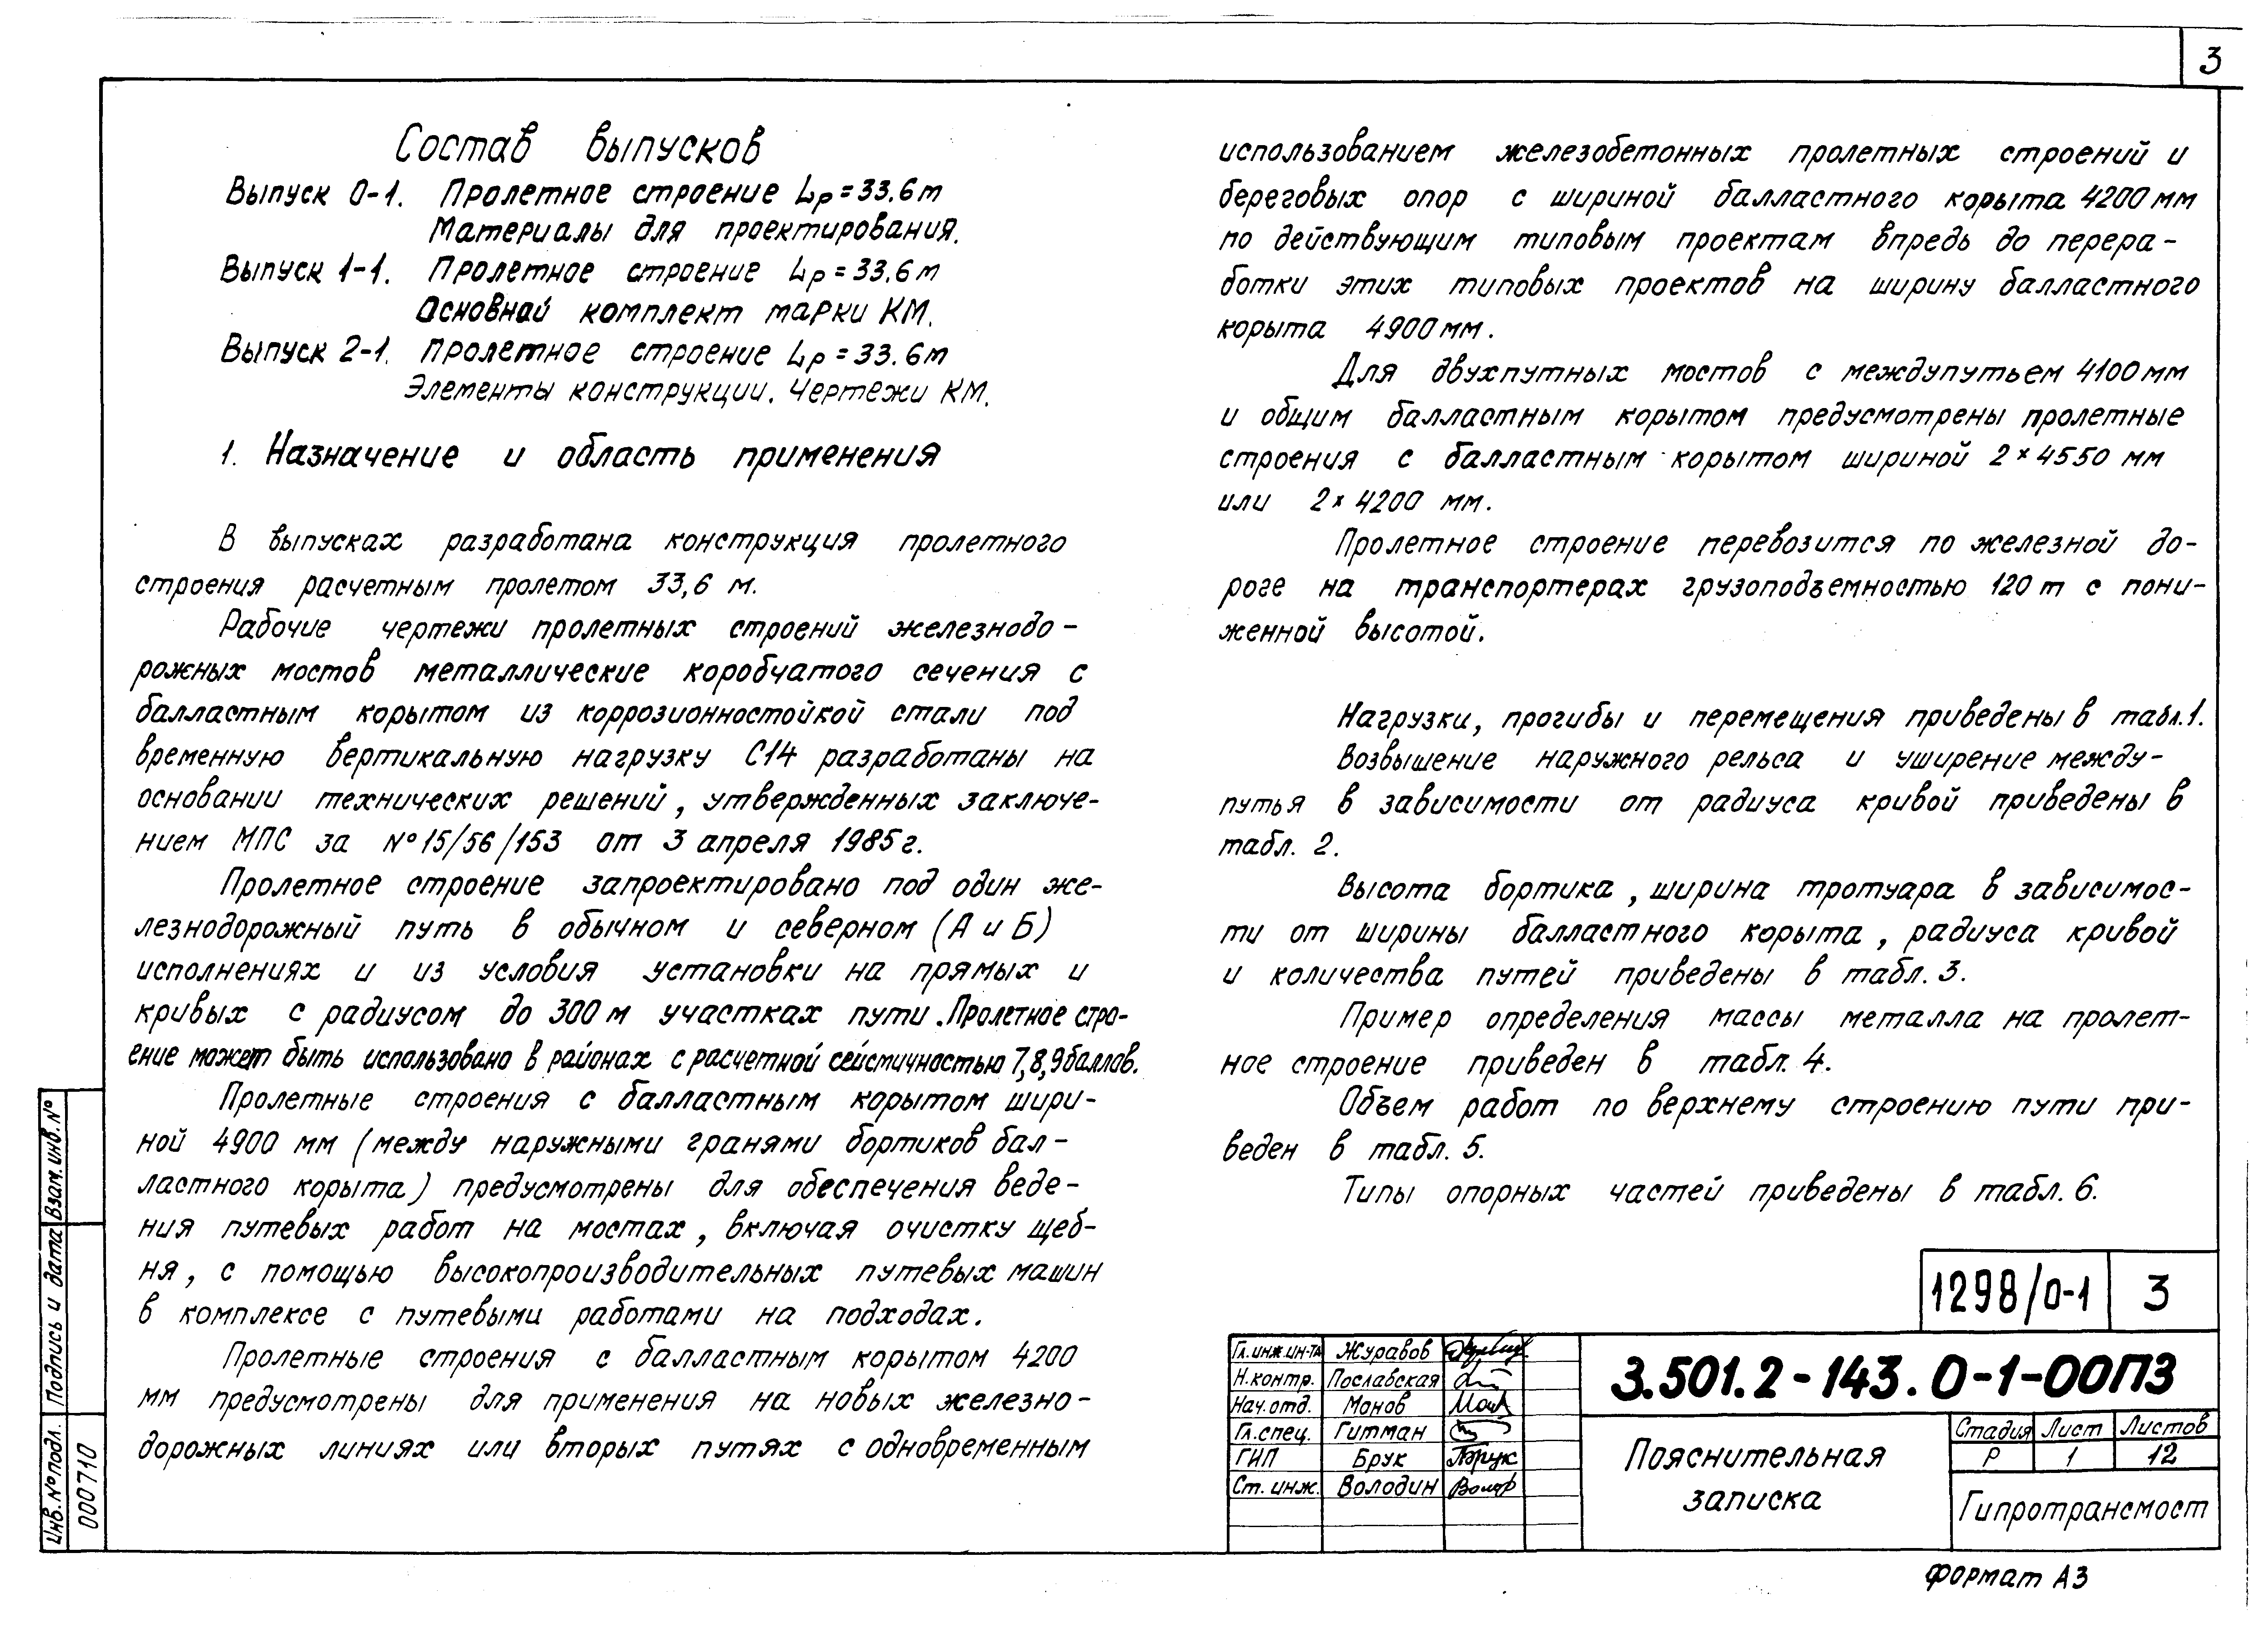 3
Состав выпусков
Выпуск 0-1. Пролетное строение Lр = 33.6 м
Материалы для проектирования.
Выпуск 1-1. Пролетное строение Lр = 33.6 м
Основной комплект марки КМ.
Выпуск 2-1. Пролетное строение Lр = 33.6 м
Элементы конструкции. Чертежи КМ.
1. Назначение и область применения
В выпусках разработана конструкция пролетного
строения расчетным пролетом 33,6 м.
Рабочие чертежи пролетных строений железнодо-
рожных мостов металлические коробчатого сечения с
балластным корытом из коррозионностойкой стали под
временную вертикальную нагрузку С14 разработаны на
основании технических решений, утвержденных заключе-
нием МПС за № 15/56/153 от 3 апреля 1985 г.
Пролетное строение запроектировано под один же-
лезнодорожный путь в обычном и северном (А и Б)
исполнениях и из условия установки на прямых и
кривых с радиусом до 300 м участках пути. Пролетное стро-
ение может быть использовано в районах с расчетной сейсмичностью 7,8,9 баллов.
Пролетные строения с балластным корытом шири-
ной 4900 мм (между наружными гранями бортиков бал-
ластного корыта) предусмотрены для обеспечения веде-
ния путевых работ на мостах, включая очистку щеб-
ня, с помощью высокопроизводительных путевых машин
в комплексе с путевыми работами на подходах.
Пролетные строения с балластным корытом 4200
мм предусмотрены для применения на новых железно-
дорожных линиях или вторых путях с одновременным
использованием железобетонных пролетных строений и
береговых опор с шириной балластного корыта 4200 мм
по действующим типовым проектам впредь до перера-
ботки этих типовых проектов на ширину балластного
корыта 4900 мм.
Для двухпутных мостов с междупутьем 4100 мм
и общим балластным корытом предусмотрены пролетные
строения с балластным корытом шириной 2 × 4550 мм
или 2 × 4200 мм.
Пролетное строение перевозится по железной до-
роге на транспортерах грузоподъемностью 120 т с пони-
женной высотой.
Нагрузки, прогибы и перемещения приведены в табл. 1.
Возвышение наружного рельса и уширение между-
путья в зависимости от радиуса кривой приведены в
табл. 2.
Высота бортика, ширина тротуара в зависимос-
ти от ширины балластного корыта, радиуса кривой
и количества путей приведены в табл. 3.
Пример определения массы металла на пролет-
ное строение приведен в табл. 4.
Объем работ по верхнему строению пути при-
веден в табл. 5.
Типы опорных частей приведены в табл. 6.
1298/0-1 3
Гл. инж. ин-та Журавов
Н. контр. Пославская
Нач. отд. Монов
Гл. спец. Гитман
ГИП Брук
Ст. инж. Володин
3.501.2-143.0-1-00ПЗ
Пояснительная
записка
Стадия Лист Листов
Р 1 12
Гипротрансмост
Формат А3
Взам. инв. №
Подпись и дата
Инв. № подл.
000710